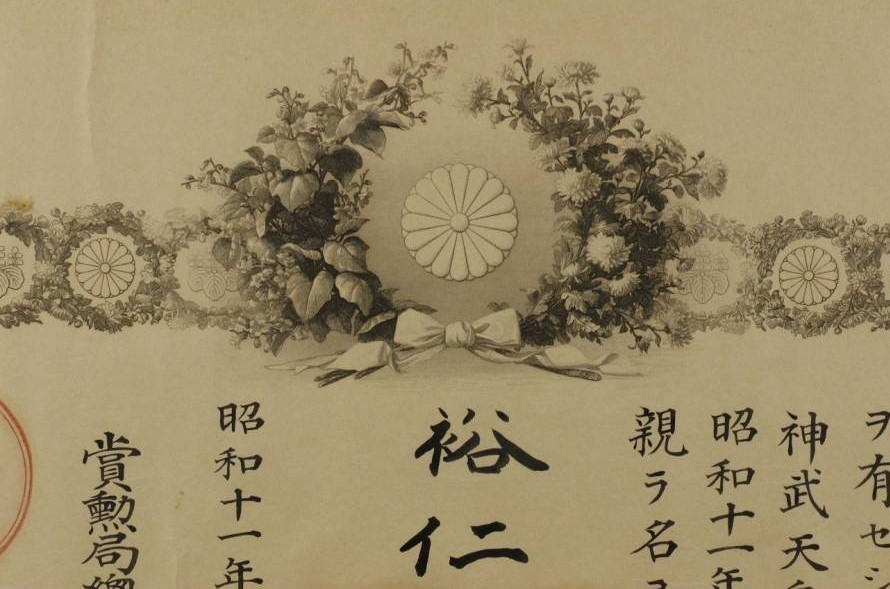 ヲ有セシ
神武天
昭和十一年
親ラ名
裕仁
昭和十一年
賞勲局